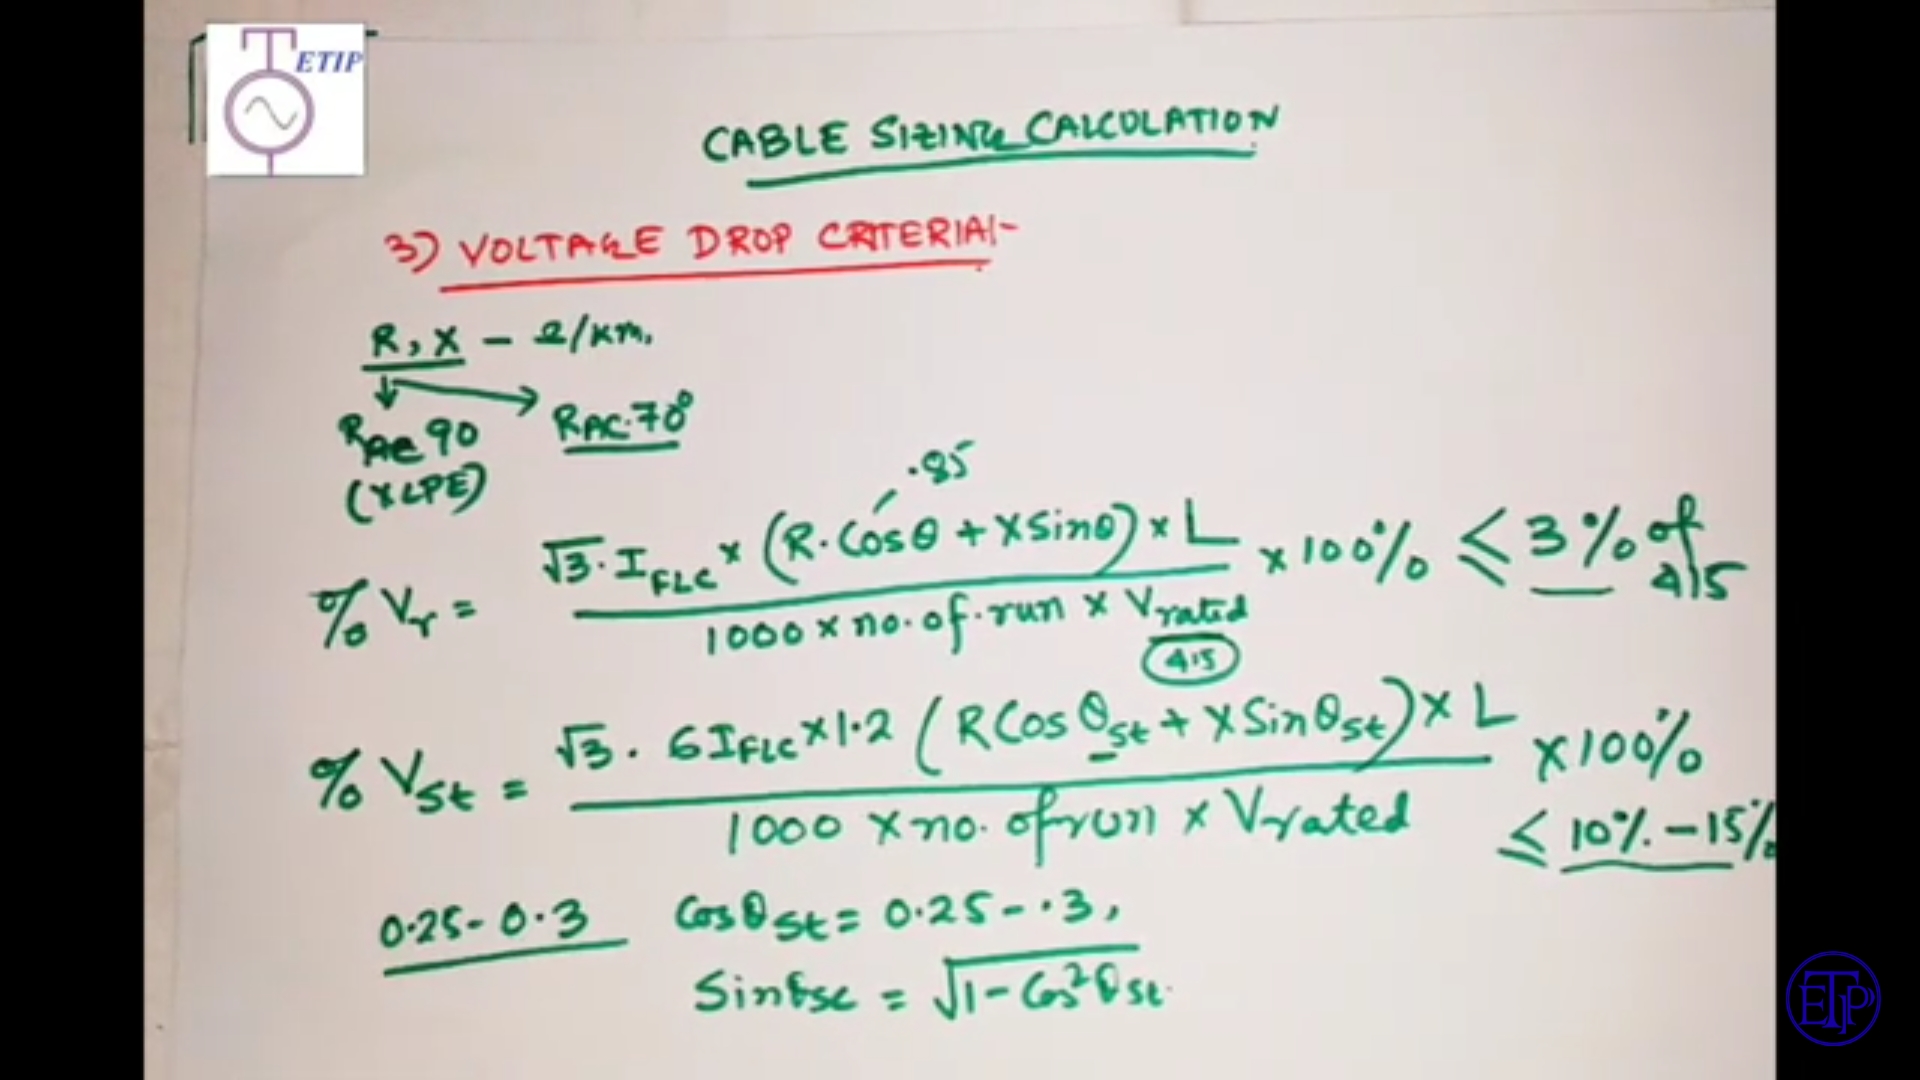 ETIP
CABLE SIZING CALCULATION
3) VOLTAGE DROP CRITERIA:-
R, X - Ω/km.
RAC 90 RAC.70°
(XLPE)
.85
% Vr = √3. IFLC × (R. Cosθ + X Sinθ) × L / 1000 × no. of. run × Vrated × 100% ≤ 3% of 415
415
% VSt = √3 . 6 IFLC × 1.2 (R Cos θSt + X Sin θSt) × L / 1000 × no. of run × Vrated × 100%
≤ 10% - 15%
0.25 - 0.3 Cos θSt = 0.25 - .3,
Sin θSc = √1 - Cos² θSt.
ETIP